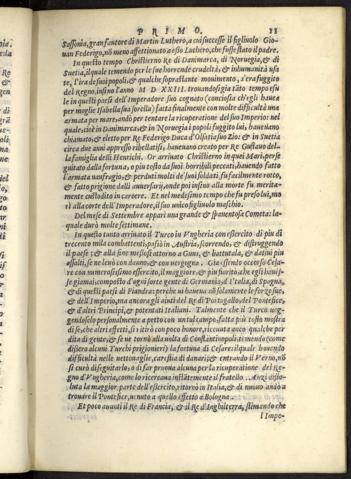 PRIMO. 11
Sassonia, gran fautore di Martin Luthero, a cui successe il figliuolo Gio-
uan Federigo, nō meno affettionato a esso Luthero, che fusse stato il padre.
In questo tempo Christierno Re di Danimarca, di Noruegia, & di
Suetia, il quale temendo per le sue horrende crudeltà, & inhumanità usa
te, l'ira de suoi popoli; & qualche soprastante mouimento, s'era fuggito
del Regno, insino l'anno M D XXIII. trouandosi gia tāto tempo esu
le in questi paesi dell'Imperatore suo cognato (conciosia ch'egli hauea
per moglie Isabella sua sorella) fatta finalmente con molte difficultà una
armata per mare, andò per tentare la ricuperatione del suo Imperio: nel
quale, cioè in Danimarca & in Noruegia i popoli fuggito lui, haueuano
chiamato & eletto per Re Federigo Duca d'Olsatia suo Zio: & in Suetia
circa due anni appresso ribellatisi, haueuano creato per Re Gustauo del-
la famiglia delli Henrichi. Or arriuato Christierno in quei Mari, perse
guitato dalla fortuna, o piu tosto da suoi horribili peccati, hauendo fatto
l'armata naufragio, & perduti molti de' suoi soldati, fu facilmente rotto,
& fatto prigione dalli auuersarij, onde poi insino alla morte fu merita-
mente custodito in carcere. Et nel medesimo tempo che fu preso lui, mo
rì alla corte dell'Imperadore, il suo unico figliuolo maschio.
Del mese di Settembre apparì una grande & spauentosa Cometa: la-
quale durò molte settimane.
In questo tanto arriuato il Turco in Vngheria con esercito di piu di
trecento mila combattenti, passò in Austria, scorrendo, & distruggendo
il paese: & alla fine messosi attorno a Guns, & battutala, & datoui piu
assalti, se ne leuò con danno & con vergogna. Gia essendo occorso Cesa-
re con numerosissimo esercito, il maggiore, & piu fiorito che egli hauesse
se giamai, composto d'ogni sorte genti di Germania, d'Italia, di Spagna,
& di questi paesi di Fiandra: perche ui haueua nō solamente le forze sue,
& dell'Imperio, ma ancora gli aiuti del Re di Portogallo, del Pontefice,
& d'altri Principi, & potentati Italiani. Talmente che il Turco ueg-
gendoselo personalmente a petto con un tal campo, fatta più tosto mostra
di se, che altri effetti, si ritirò con poco honore, riceuuta anco qualche per
dita di gente, & se ne tornò alla uolta di Constantinopoli
difficultà nelle uettouaglie, carestia di danari; & entrando il Verno, nō
si curò di seguitarlo, ò di far pruoua alcuna per la ricuperatione del Re-
gno d'Vngheria, come lo ricercaua instātemente il fratello
luta la maggior parte dell'esercito, ritornò in Italia, & di nuouo andò a
trouare il Pontefice, uenuto a quello effetto a Bologna.
Et poco auanti il Re di Francia, & il Re d'Inghilterra, stimando che
l'Impe-